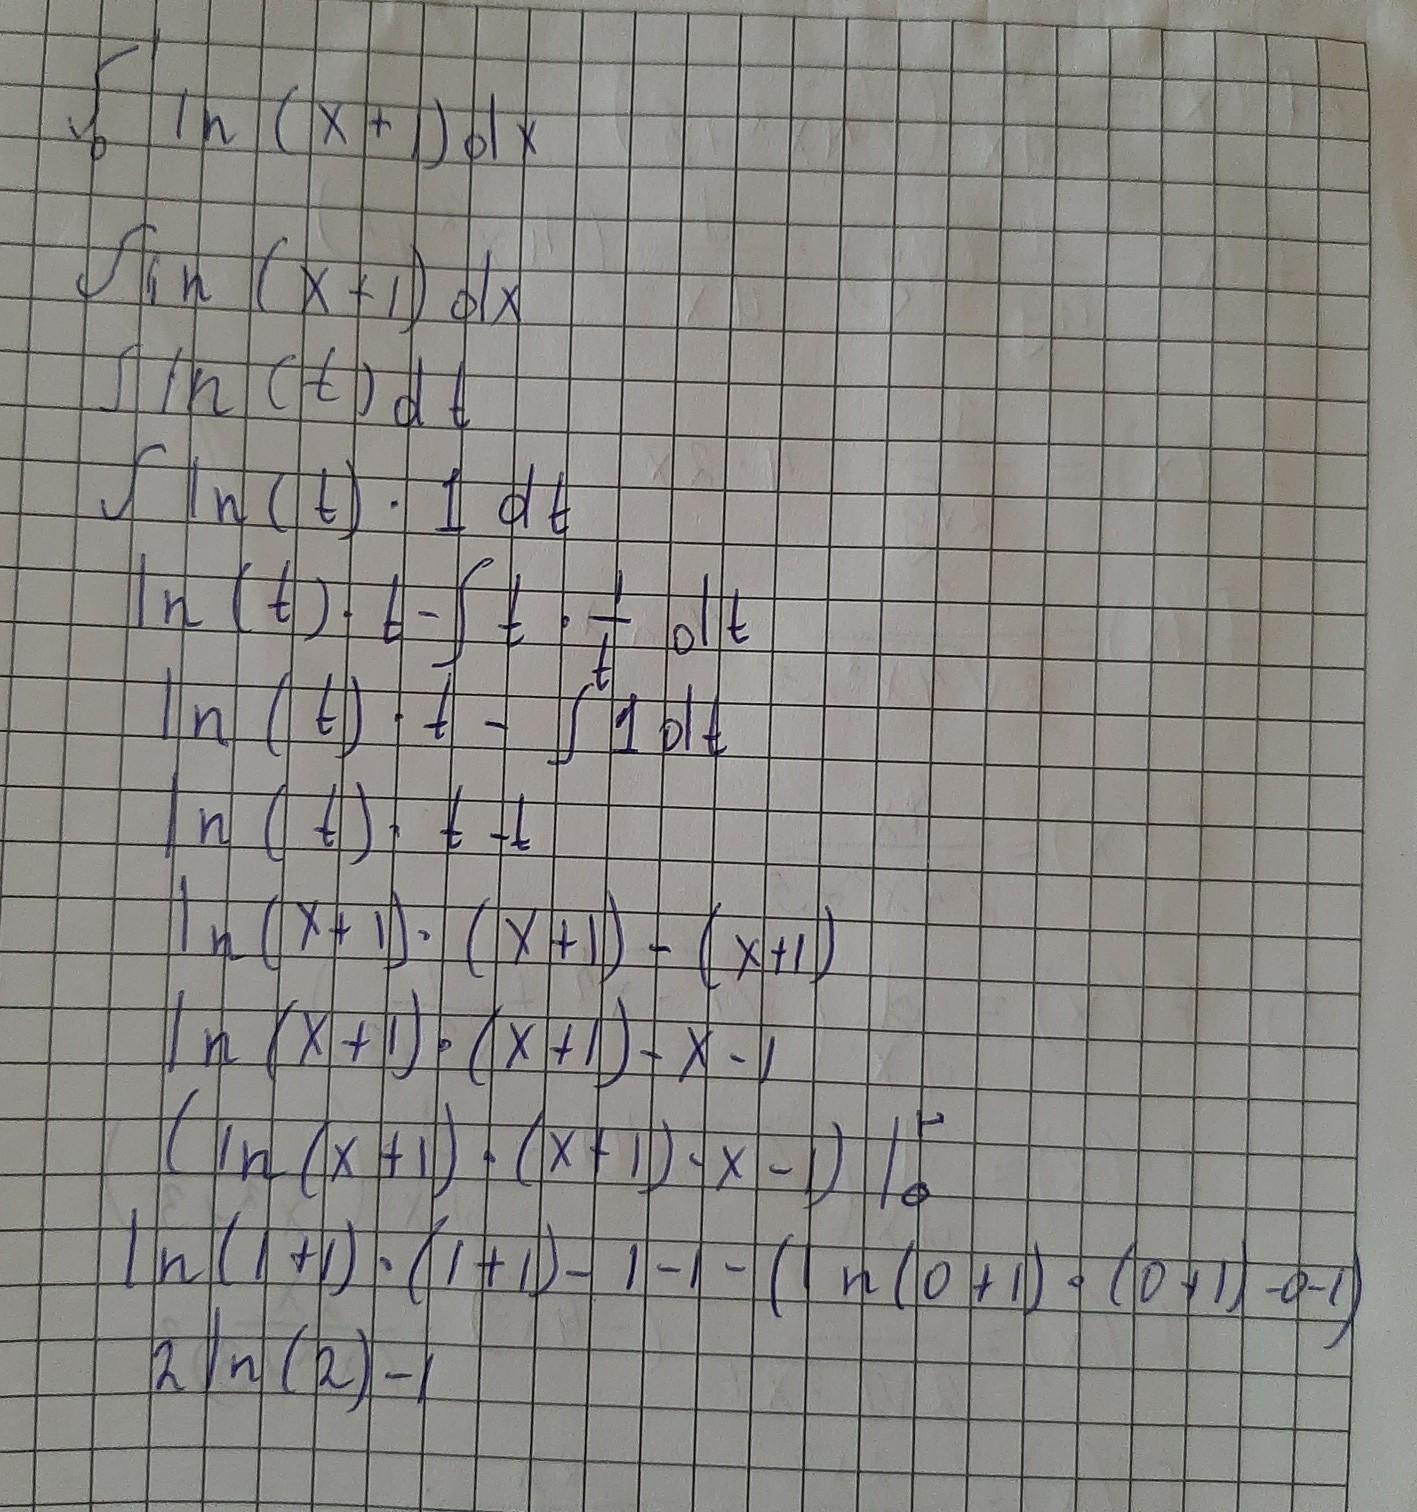 ∫₀¹ ln (x+1) dx
∫ ln (x+1) dx
∫ ln (t) dt
∫ ln (t) · 1 dt
ln (t) · t - ∫ t · 1/t dt
ln (t) · t - ∫ 1 dt
ln (t) · t - t
ln (x+1) · (x+1) - (x+1)
ln (x+1) · (x+1) - x - 1
(ln (x+1) · (x+1) - x - 1) |₀¹
ln (1+1) · (1+1) - 1 - 1 - (ln (0+1) · (0+1) - 0 - 1)
2 ln (2) - 1